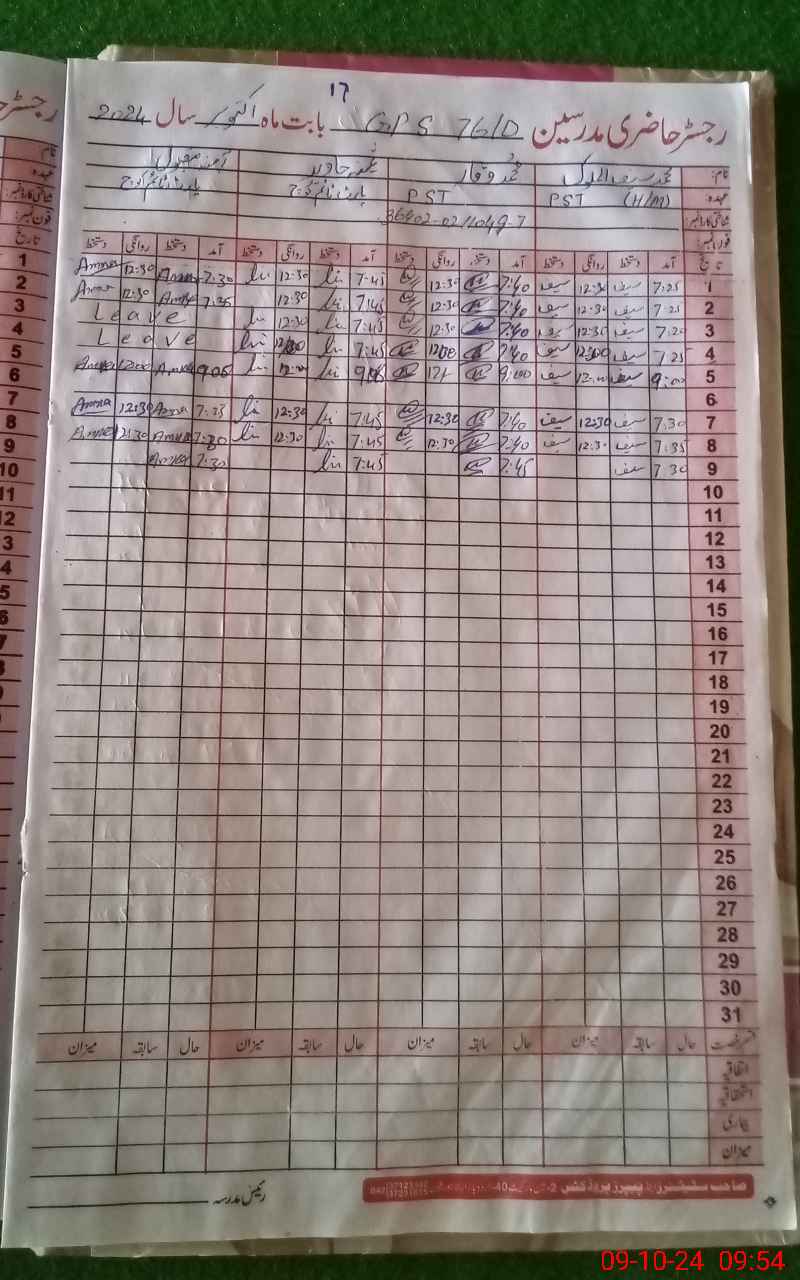 17
رجسٹر حاضری مدرسین GPS 76/D بابت ماہ اکتوبر سال 2024
نام: محمد سیف الملوک محمد وقار محمد جاوید آمنہ مقبول
عہدہ: PST (H/M) PST پارٹ ٹائم کوچ پارٹ ٹائم کوچ
شناختی کارڈ نمبر:
فون نمبر:
تاریخ آمد دستخط روانگی دستخط آمد دستخط روانگی دستخط آمد دستخط روانگی دستخط آمد دستخط روانگی دستخط
1 7:25 سیف 12:30 سیف 7:40 12:30 7:45 12:30 7:30 Amna 12:30 Amna
2 7:25 سیف 12:30 سیف 7:40 12:30 7:45 12:30 7:35 Amna 12:30 Amna
3 7:20 سیف 12:30 سیف 7:40 12:30 7:45 12:30 Leave
4 7:25 سیف 12:00 سیف 7:40 12:00 7:45 12:00 Leave
5 9:00 سیف 12:00 سیف 9:00 9:05 12:00 9:05 Amna 12:00 Amna
6
7 7:30 سیف 12:30 سیف 7:40 12:30 7:45 12:30 7:25 Amna 12:30 Amna
8 7:35 سیف 12:30 سیف 7:40 12:30 7:45 12:30 7:30 Amna 12:30 Amna
9 7:30 سیف 7:45 7:45 7:30 Amna
10
11
12
13
14
15
16
17
18
19
20
21
22
23
24
25
26
27
28
29
30
31
قسم رخصت حال سابقہ میزان حال سابقہ میزان حال سابقہ میزان حال سابقہ میزان
اتفاقیہ
استحقاقیہ
بیماری
میزان
رئیس مدرسہ
09-10-24 09:54